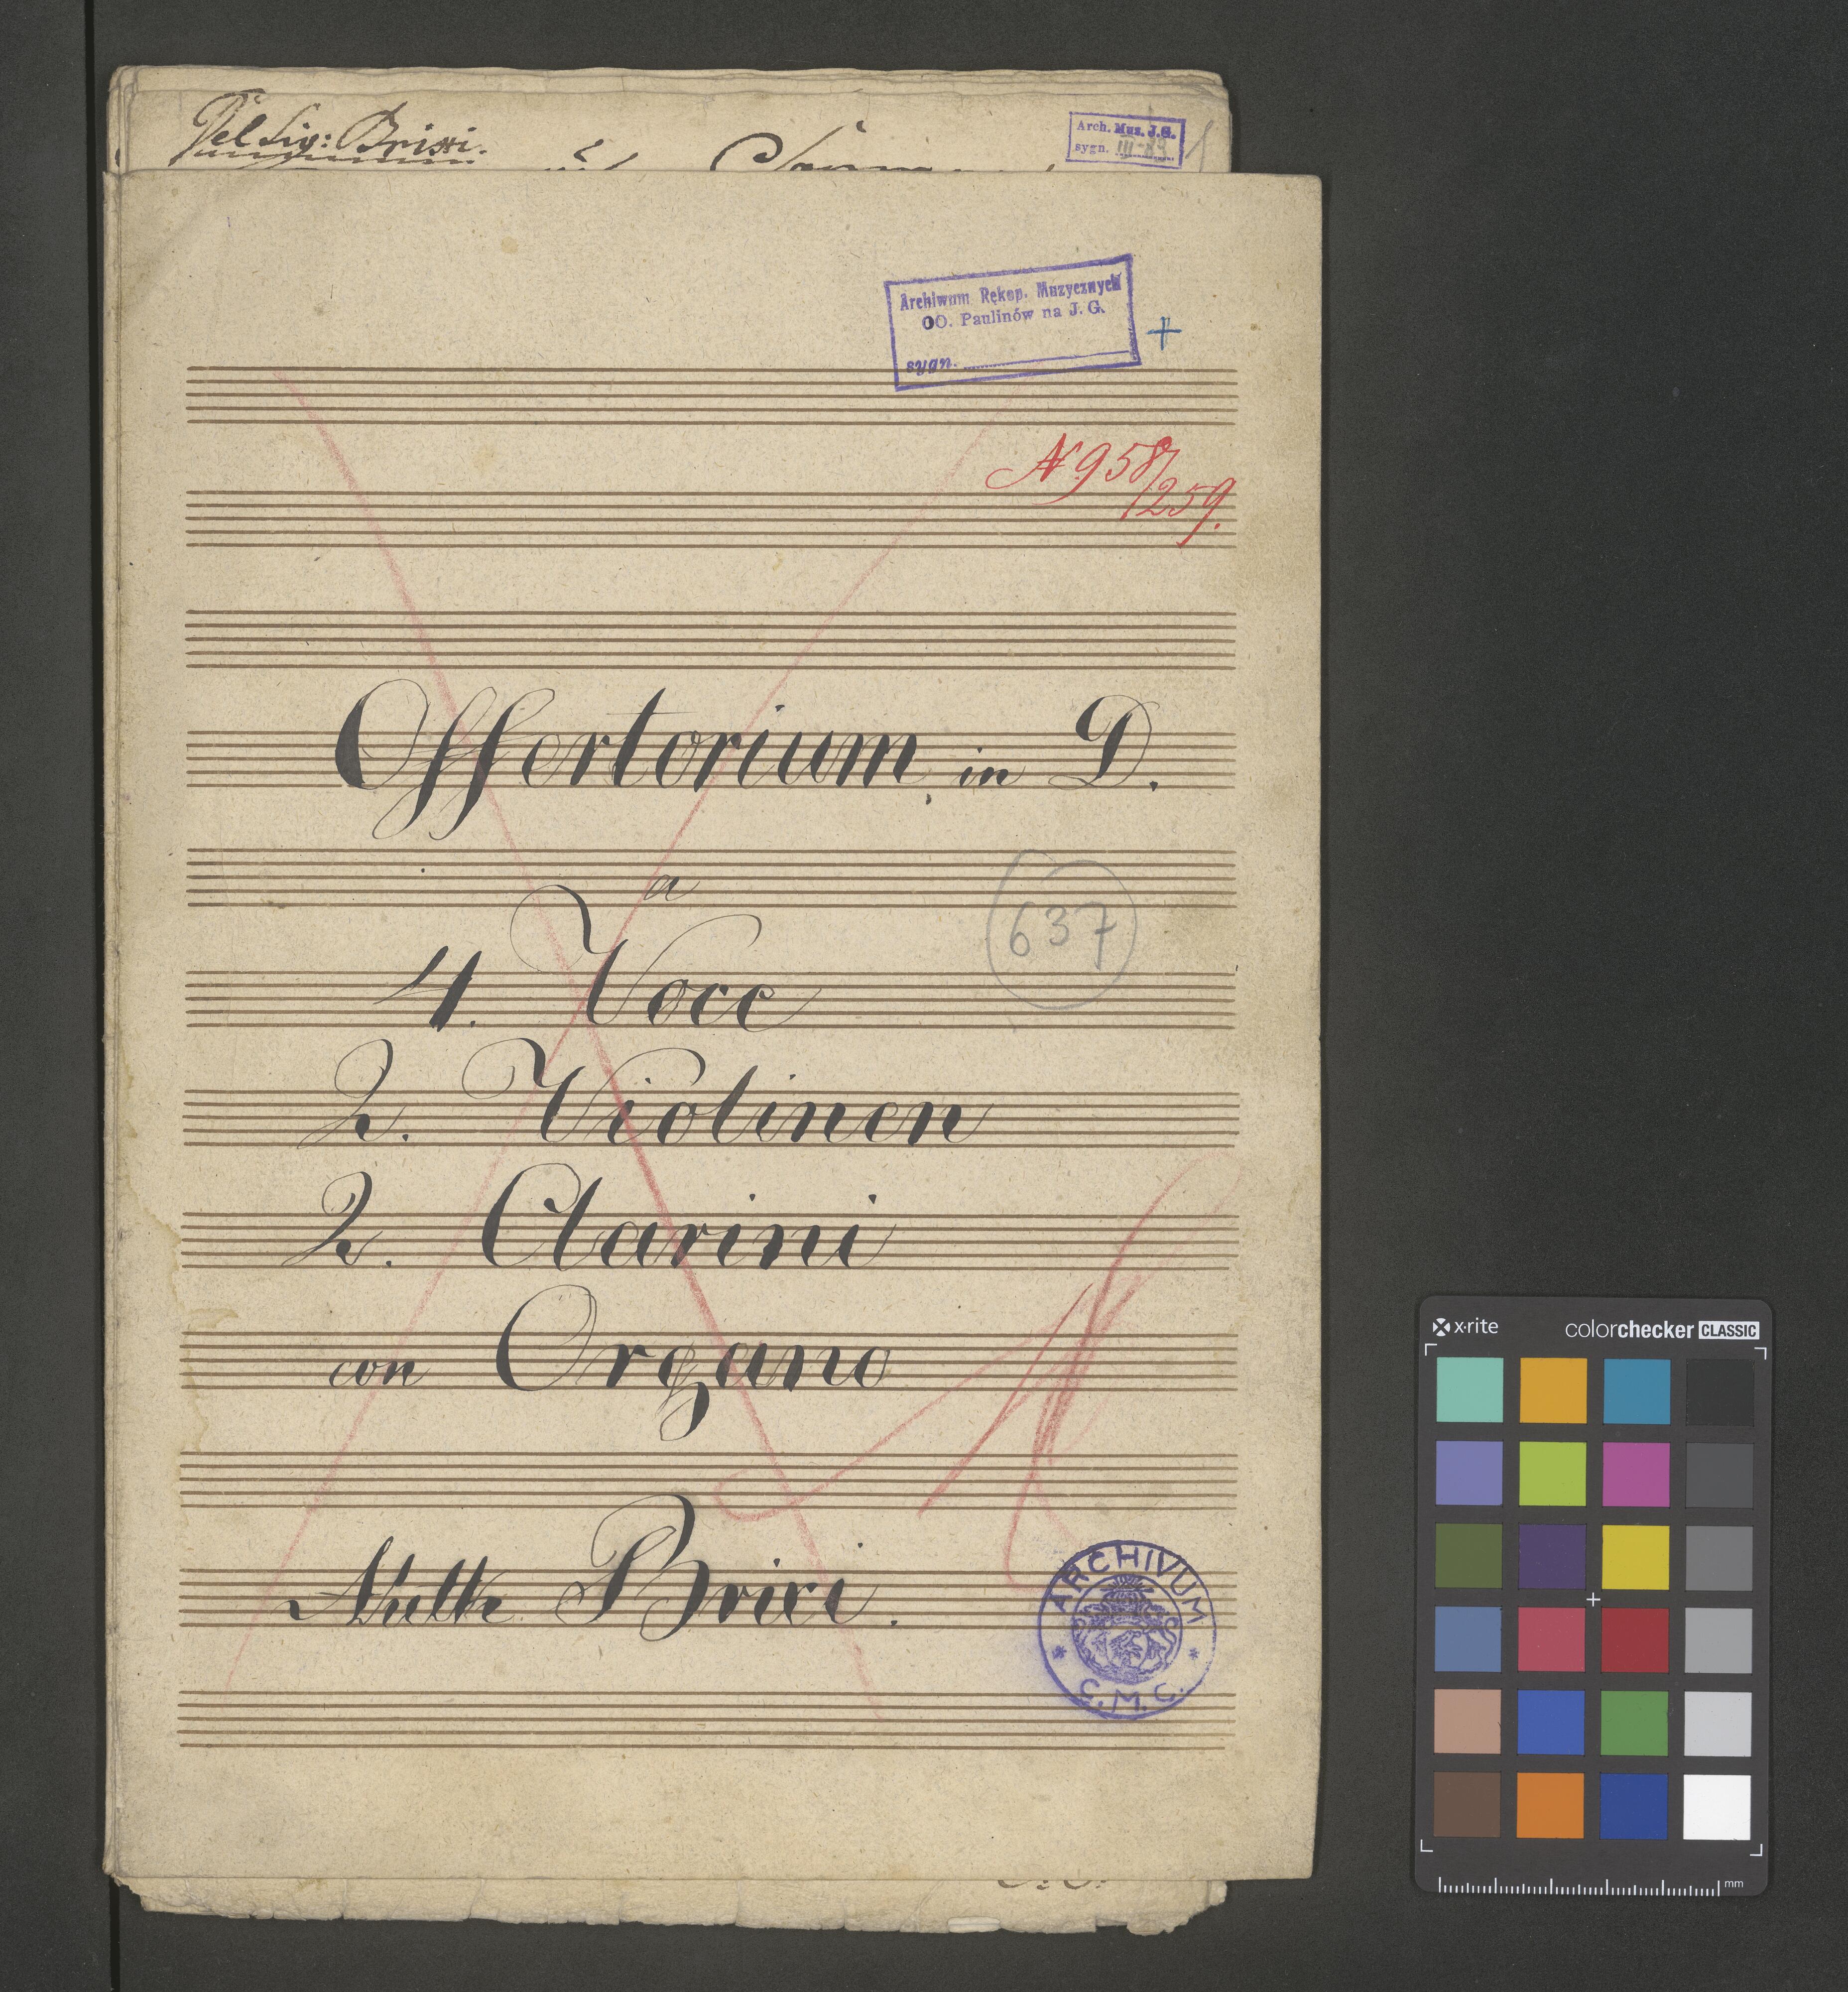 Del Sig: Brixi.
Arch. Muz. J.G.
sygn. III-83
Archiwum Rękop. Muzycznych
OO. Paulinów na J. G.
sygn.
+
N. 958/
259.
Offertorium in D.
a
637
4. Voce
2. Violinen
2. Clarini
con Organo
Brixi.
ARCHIVUM
* C. M. C. *
x-rite
colorchecker CLASSIC
mm